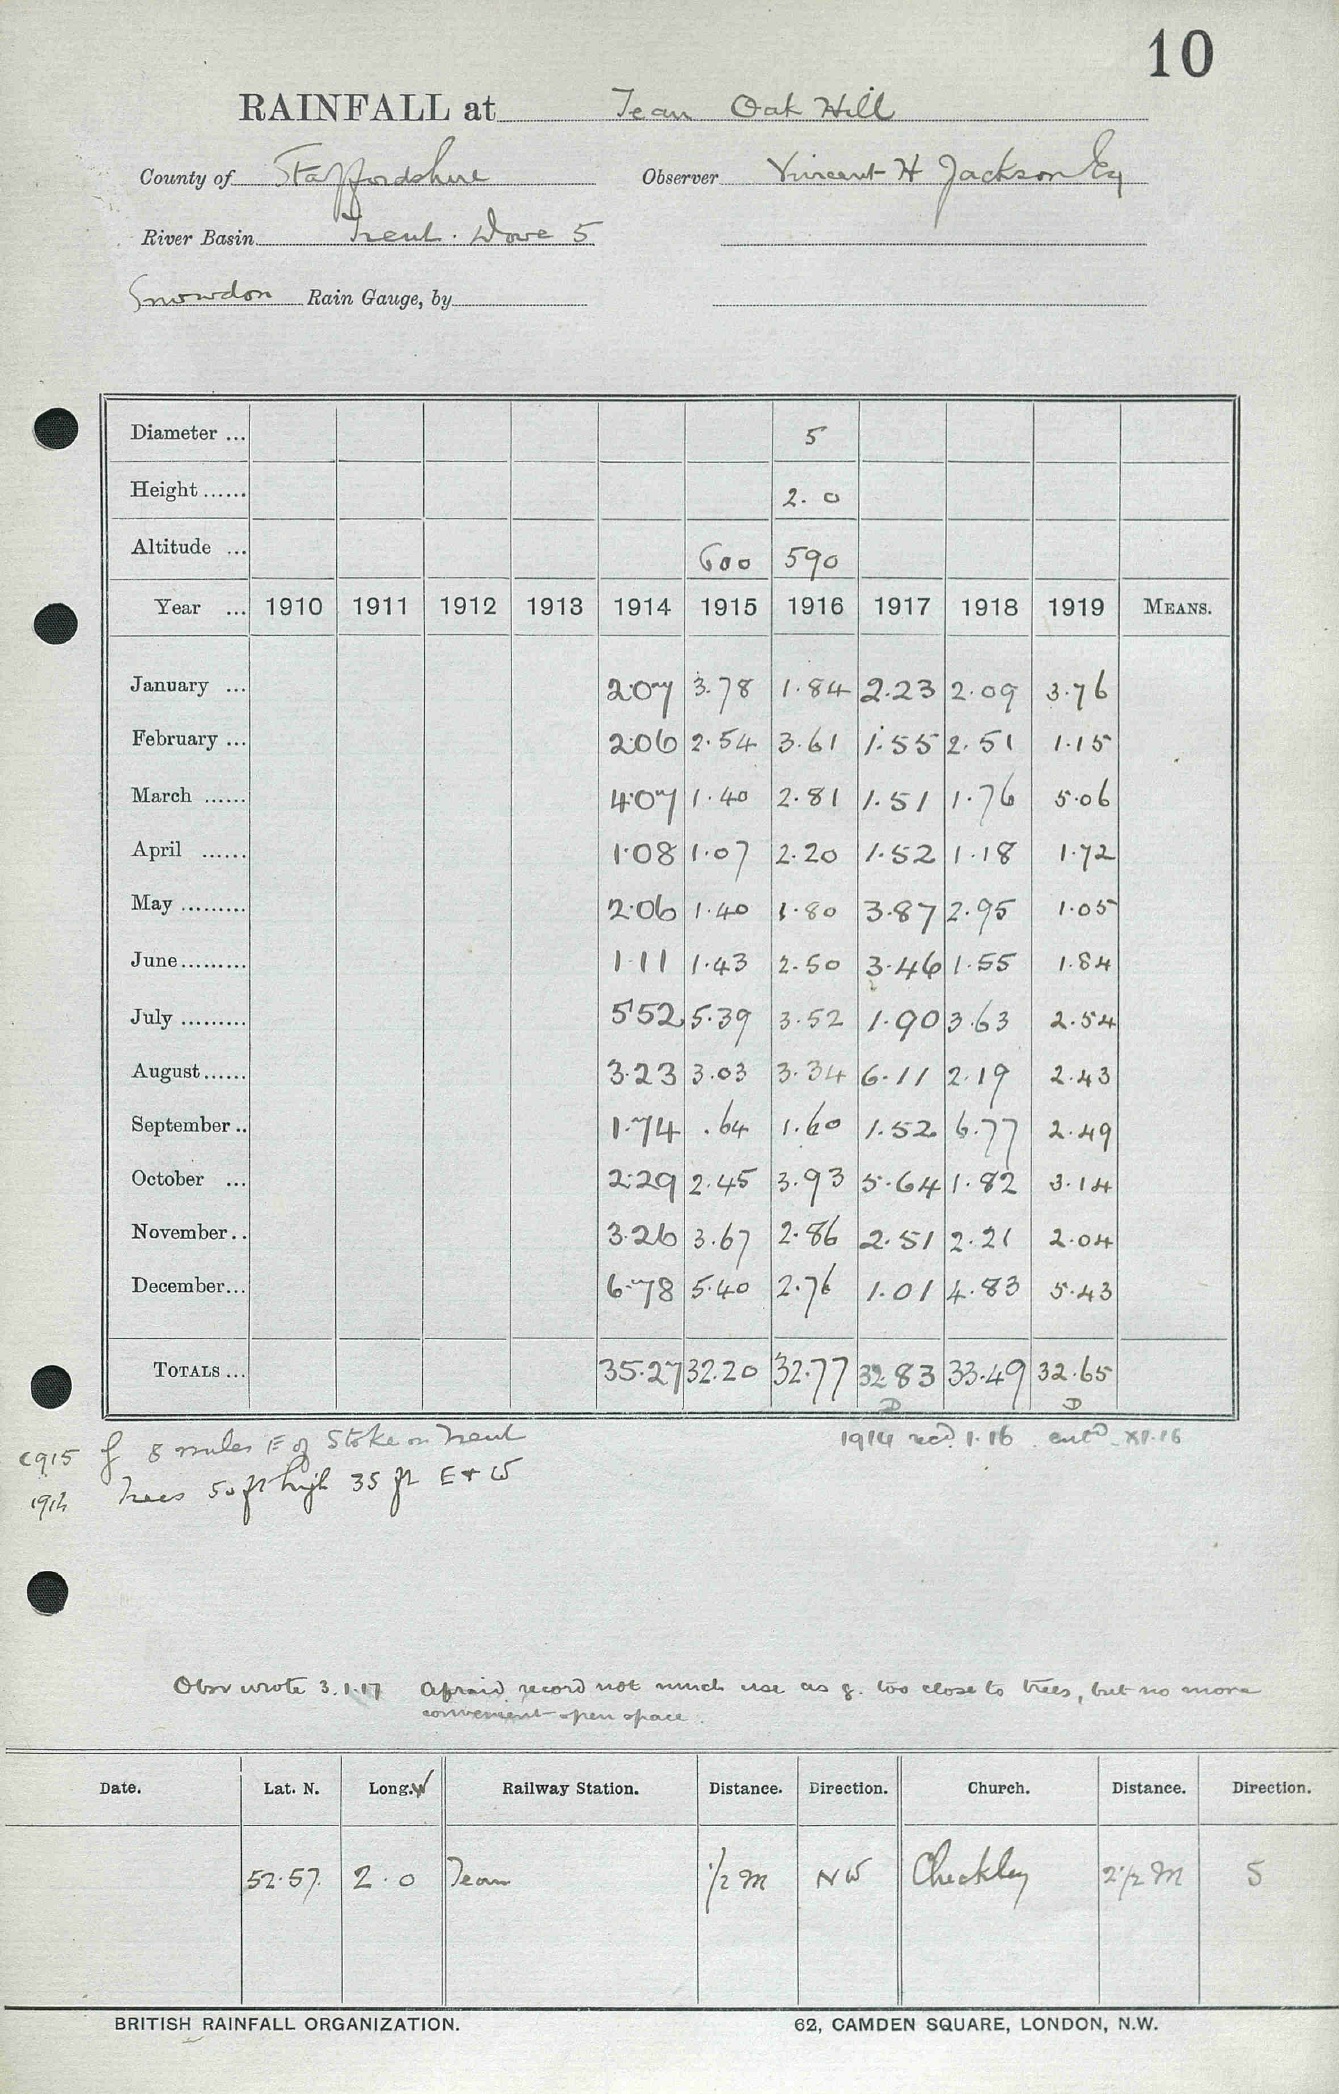 10
RAINFALL at Tean Oak Hill
County of Staffordshire Observer Vincent H Jackson Esq
River Basin Trent. Dove 5
Snowdon Rain Gauge, by
Diameter ... 5
Height ...... 2. 0
Altitude ... 600 590
Year ... 1910 1911 1912 1913 1914 1915 1916 1917 1918 1919 MEANS.
January ... 2.07 3.78 1.84 2.23 2.09 3.76
February ... 2.06 2.54 3.61 1.55 2.51 1.15
March ...... 4.07 1.40 2.81 1.51 1.76 5.06
April ...... 1.08 1.07 2.20 1.52 1.18 1.72
May ......... 2.06 1.40 1.80 3.87 2.95 1.05
June......... 1.11 1.43 2.50 3.46 1.55 1.84
July ......... 5.52 5.39 3.52 1.90 3.63 2.54
August...... 3.23 3.03 3.34 6.11 2.19 2.43
September .. 1.74 .64 1.60 1.52 6.77 2.49
October ... 2.29 2.45 3.93 5.64 1.82 3.14
November.. 3.26 3.67 2.86 2.51 2.21 2.04
December... 6.78 5.40 2.76 1.01 4.83 5.43
TOTALS ... 35.27 32.20 32.77 32.83 33.49 32.65
D D
1915 g 8 miles E of Stoke on Trent 1914 recd. 1.16. entd. XI.16
1916 Trees 50 ft high 35 ft E & W
Obsr wrote 3.1.17 Afraid record not much use as g. too close to trees, but no more
convenient open space.
Date. Lat. N. Long. W Railway Station. Distance. Direction. Church. Distance. Direction.
52.57. 2.0 Tean 1/2 M NW Checkley 2 1/2 M S
BRITISH RAINFALL ORGANIZATION. 62, CAMDEN SQUARE, LONDON, N.W.